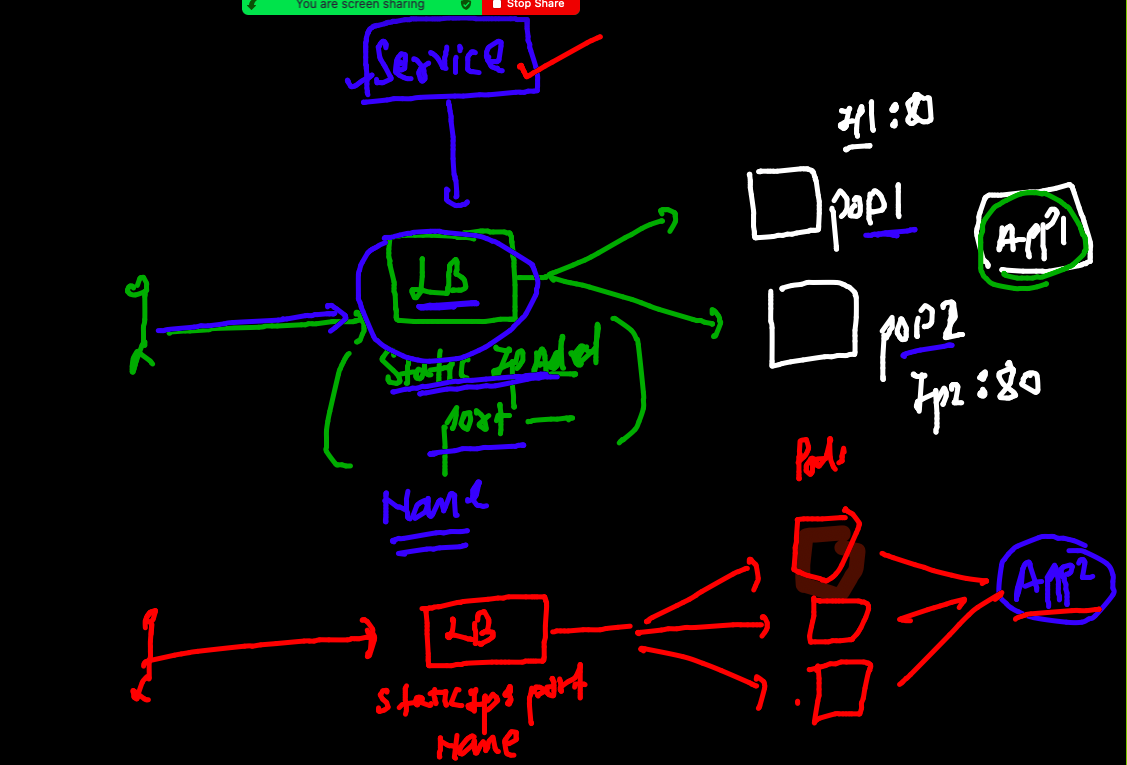 You are screen sharing
Stop Share
Service
LB
Static IPAdd
Port
Name
pop1
App1
pop2
Ip2:80
Pods
App2
LB
Static Ip & port
Name